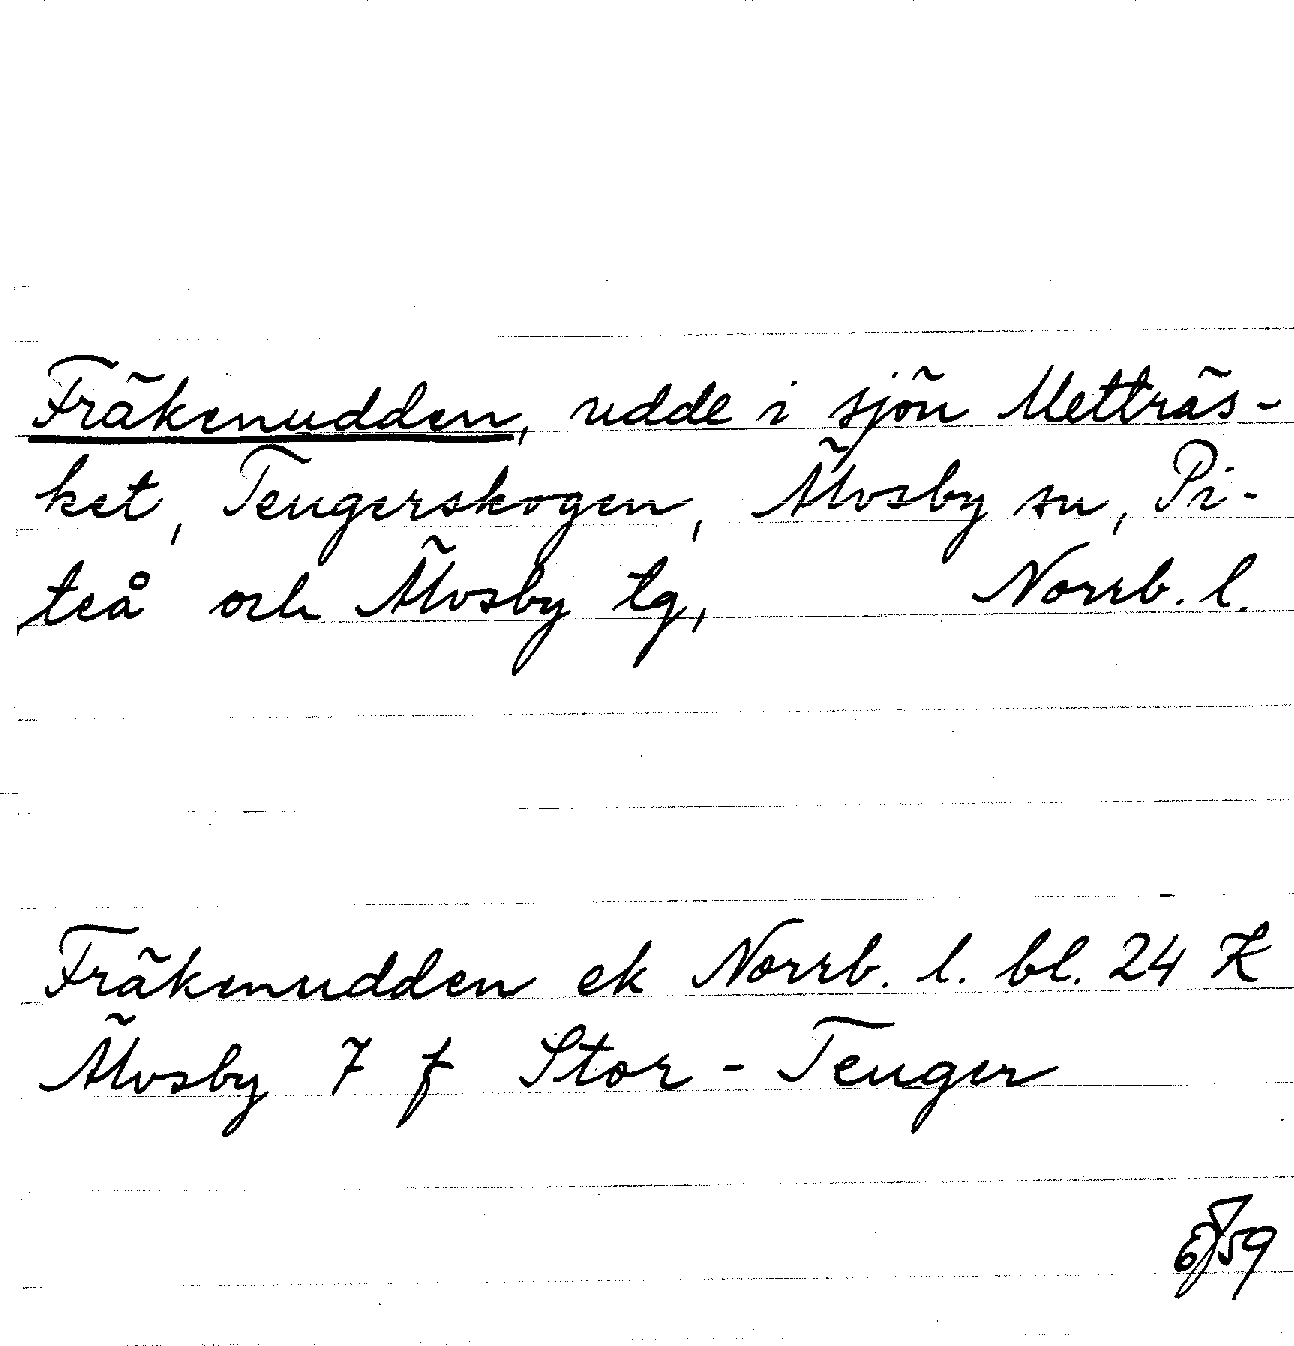 Fräkenudden, udde i sjön Metträs-
ket, Teugerskogen, Älvsby sn, Pi-
teå och Älvsby tg, Norrb. l.
Fräkenudden ek Norrb. l. bl. 24 K
Älvsby 7 f Stor-Teuger